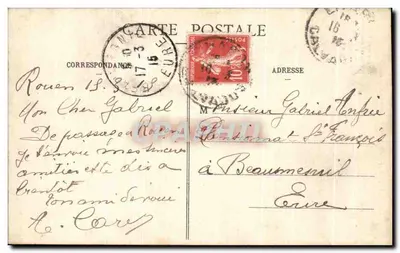 CARTE POSTALE
CORRESPONDANCE
ADRESSE
EURE
17-3
15
10
Rouen 15-3
Mon Cher Gabriel
De passage à Rouen
je t'envoie mes sincères
amitiés et te dis à
bientôt
ton ami devoué
A. Carey
M onsieur Gabriel
Pensionnat St François
à Beaumesnil
Eure